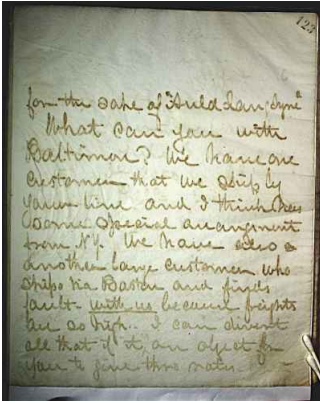 123
for the sake of "Auld Lang Syne"
What can you with
Baltimore? We have one
customer that we ship by
your line and I think has
some special arrangement
from N.Y. We have also a
another large customer who
ships via Boston and finds
fault with us because freights
are so high. I can divert
all that if it an object for
you to give thro rates